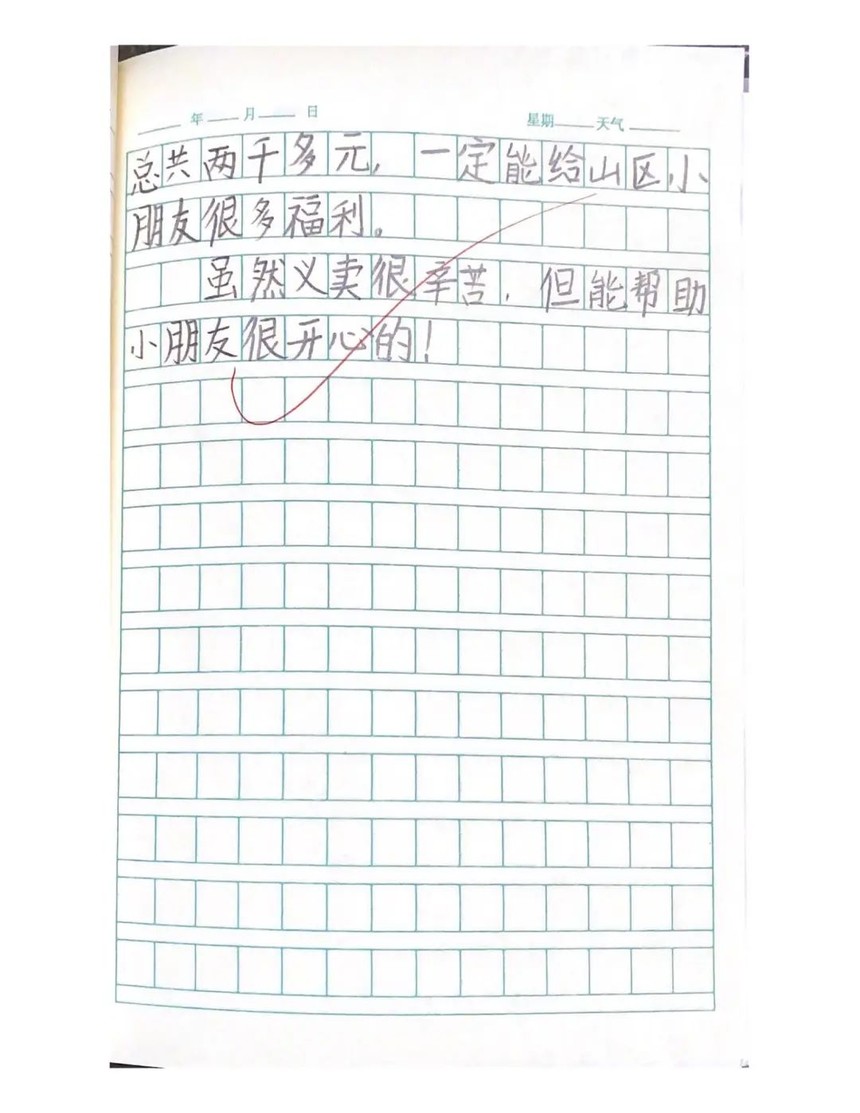 年 月 日 星期 天气
总共两千多元，一定能给山区小
朋友很多福利。
虽然义卖很辛苦，但能帮助
小朋友很开心的！